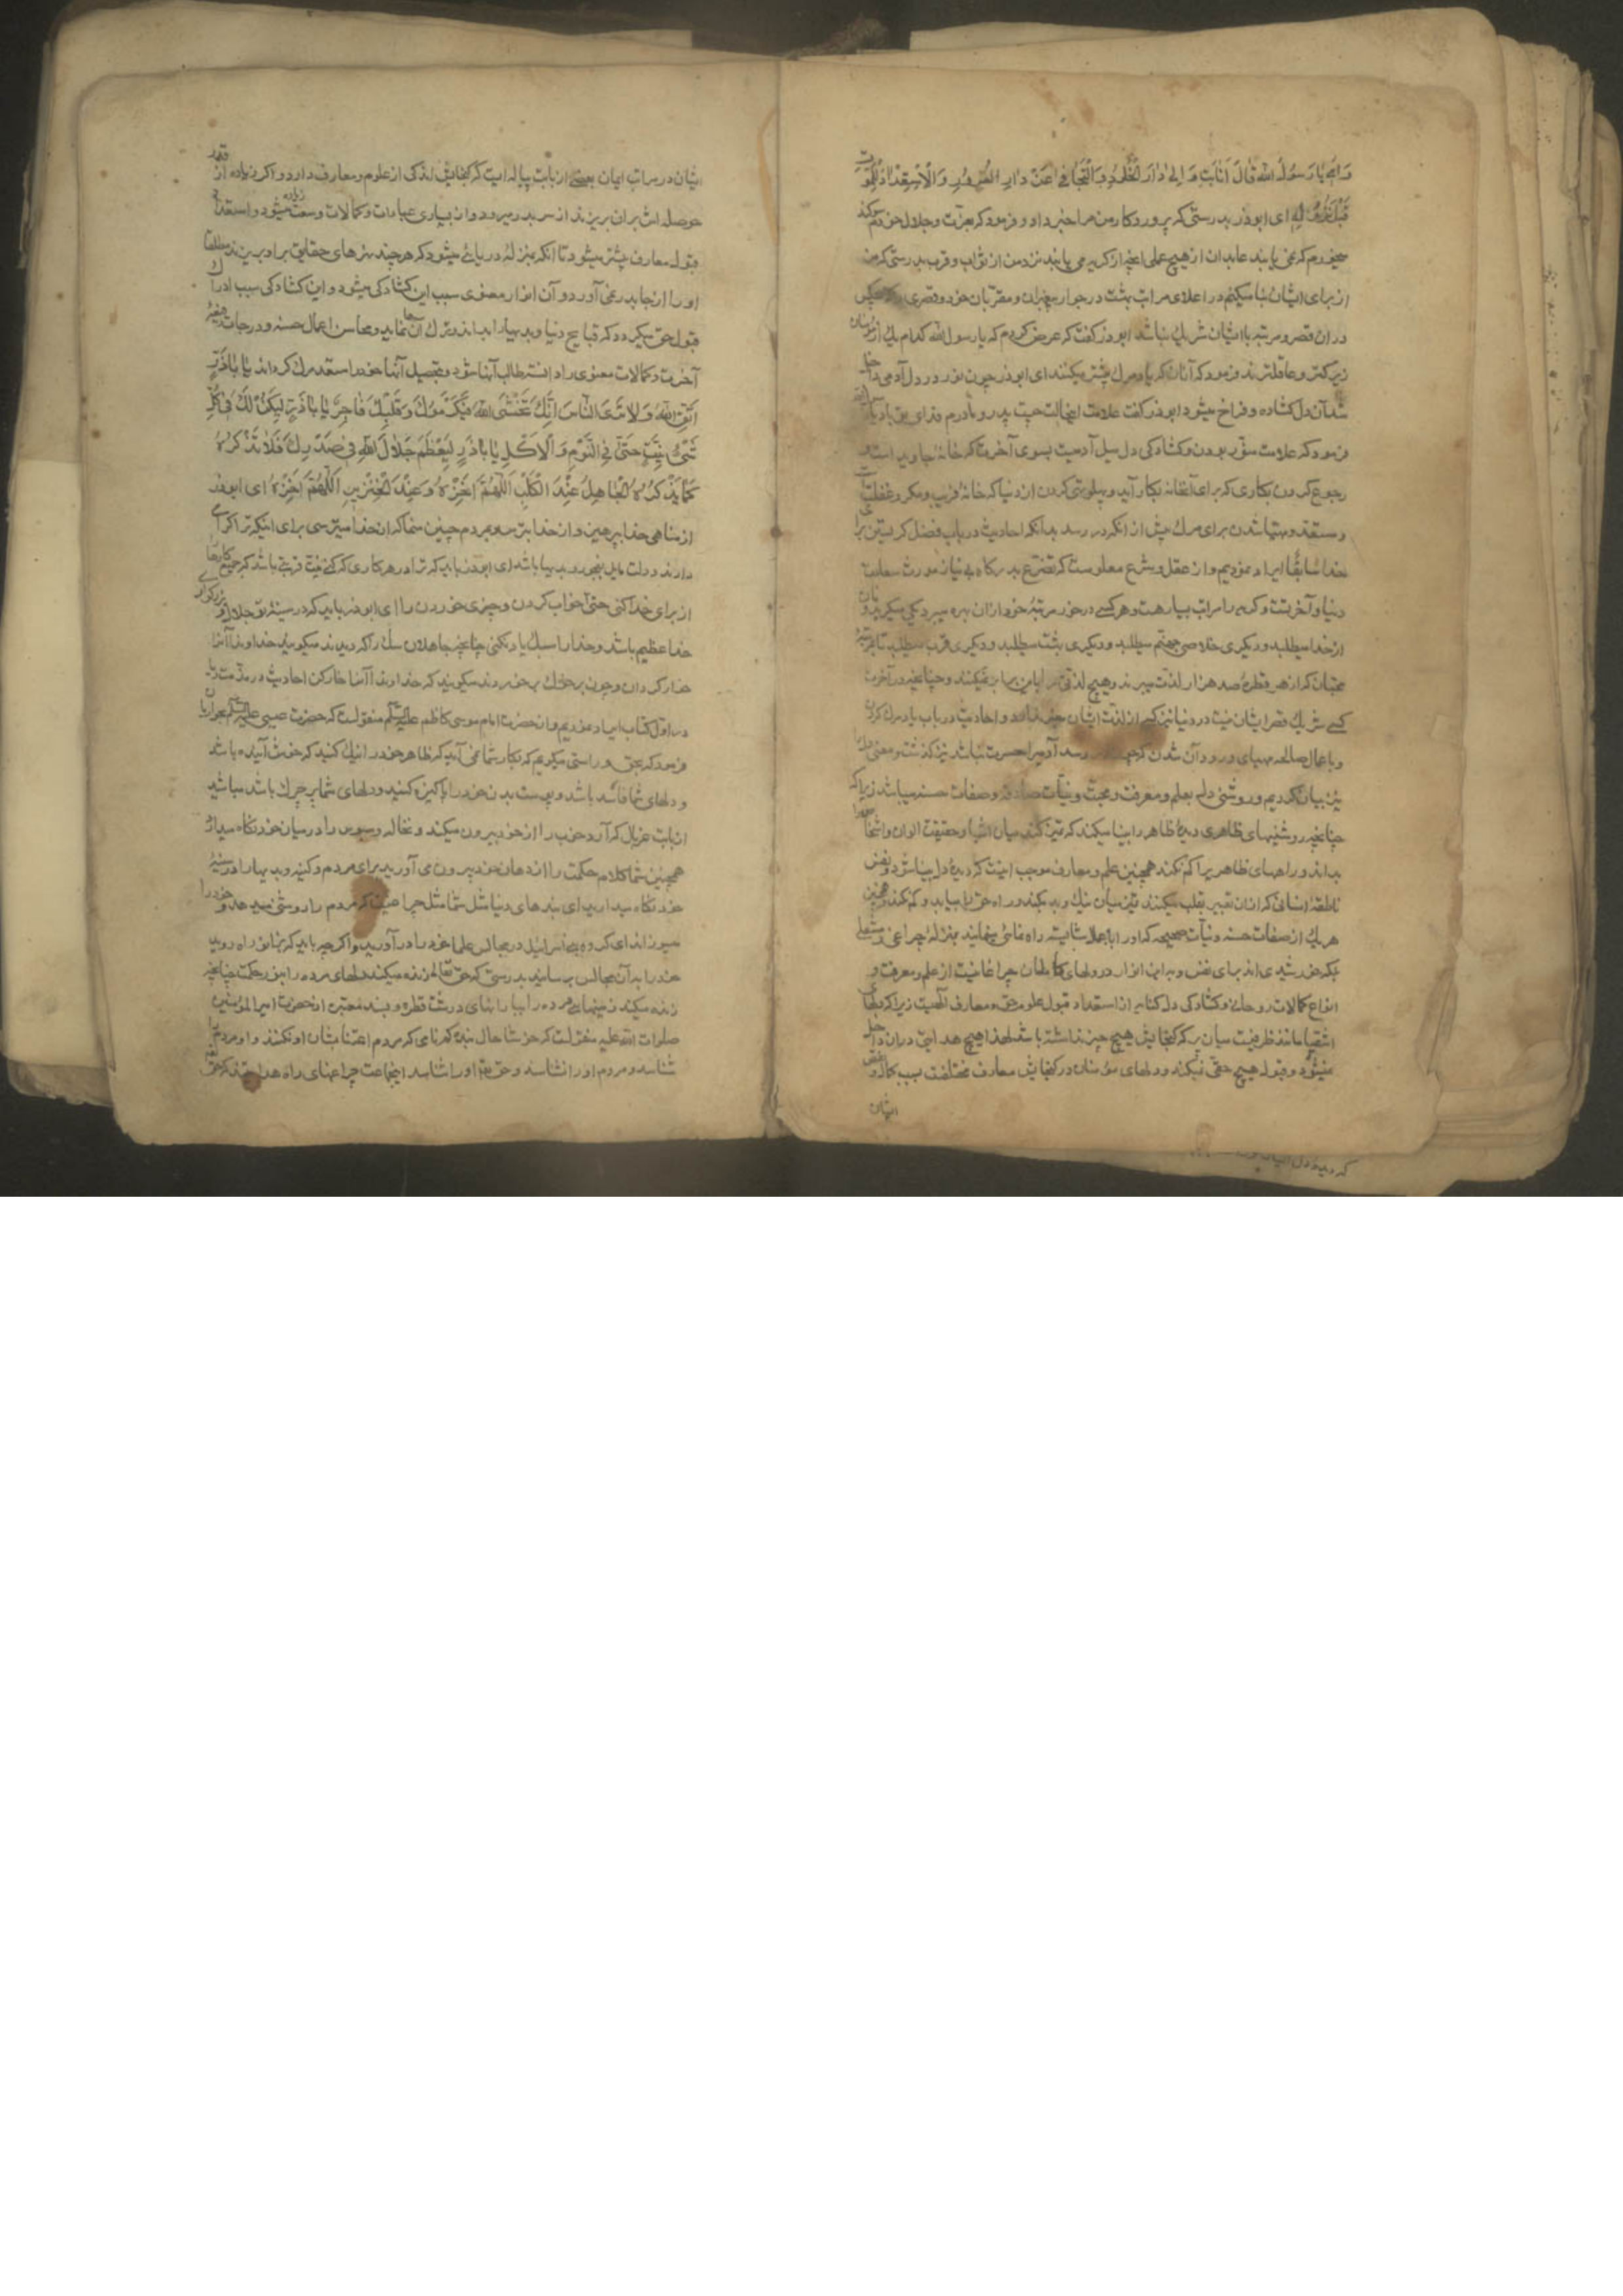 وَاُمّی یا رَسُولَ اللهِ قالَ اَلْاِنابَةُ اِلی دارِ الْخُلُودِ وَالتَّجافی عَنْ دارِ الْغُرُورِ وَالْاِسْتِعْدادُ لِلْمَوْتِ
قَبْلَ نُزُولِهِ ای ابوذر بدرستی که پروردگار من مرا خبر داد و فرمود که بعزت و جلال خودم سوکند
میخورم که نمی یابند عابدان از هیچ عملی انچه از کریه می یابند نزد من از ثواب و قرب بدرستی که من
از برای ایشان بنا میکنم در اعلای مراتب بهشت در جوار پیغمبران و مقربان خود قصری که هیچکس
دران قصر و مرتبه با ایشان شریک نباشد ابوذر کفت که عرض کردم که یا رسول الله کدام یک از مؤمنان
زیرکتر و عاقلترند فرمود که آنان که یاد مرک بیشتر میکنند ای ابوذر چون نور در دل آدمی داخل
شد آن دل کشاده و فراخ میشود ابوذر کفت علامت اینحالت چیست پدر و مادرم فدای تو باد یا رسول الله
فرمود که علامت منور بودن و کشادکی دل میل آدمیست بسوی آخرت که خانهٔ جاوید است و
رجوع کردن بکاری که برای آنخانه بکار آید و پهلو تهی کردن از دنیا که خانهٔ فریب و مکر و غفلت است
و مستعد و مهیا شدن برای مرک پیش از انکه در رسد بدانکه احادیث در باب فضل کریستن برای
خدا سابقا ایراد نمودیم و از عقل و شرع معلومست که تضرع بدرکاه بی نیاز مورث سعادت
دنیا و آخرتست و کریه را مراتب بسیار هست و هر کسی در خور مرتبهٔ خود ازان بهره میبرد یکی میکرید و نان
از خدا میطلبد و دیکری خلاصی جهنم میطلبد و دیکری بهشت میطلبد و دیکری قرب میطلبد تا بمرتبهٔ
محبتان که از هر قطرهٔ صد هزار لذت میبرند و هیچ لذتی را باین برابر نمیکنند و چنانچه در آخرت
کسی شریک قصر ایشان نیست در دنیا نیز کسی از لذت ایشان خبر ندارد و احادیث در باب یاد مرک کردن
و باعمال صالحه مهیای ورود آن شدن که چون رسد آدمیرا حسرت نباشد نیز کذشت و معنی دل را
نیز بیان کردیم و روشنی دل بعلم و معرفت و محبت و نیّات صادقه و صفات حسنه میباشد زیرا که
چنانچه روشنیهای ظاهری دیدهٔ ظاهر را بینا میکند که تمیز کند میان اشیا و حقیقت الوان و اشخاص را
بداند و راههای ظاهر را کم نکند همچنین علم و معارف موجب اینست که دیدهٔ دل بینا شود و نفس
ناطقهٔ انسانی که ازان تعبیر بقلب میکنند تمیز میان نیک و بد بکند و راه حق را بیابد و کم نکند و همچنین
هر یک از صفات حسنه و نیّات صحیحه که او را باعمال شایسته راه نمائی مینمایند بمنزلهٔ چراغی و مشعلی
بلکه خورشیدی اند برای نفس و براین انوار در دلهای کاملان چراغانیست از علم و معرفت و
انواع کمالات روحانی و کشادکی دل کنایه از استعداد قبول علوم حقه و معارف آلهیست زیرا که دلهای
اشقیا مانند ظرفیست میان پر که کنجایش هیچ چیز نداشته باشد لهذا هیچ هدایتی دران داخل
نمیشود و قبول هیچ حقی نمیکند و دلهای مؤمنان در کنجایش معارف مختلفست بسبب کمال و نقص
ایشان
ایشان در مراتب ایمان بعضی از بابت پیاله ایست که کنجایش اندکی از علوم و معارف دارد و اکر زیاده از قدر
حوصله اش بران بریزند از سر بدر میرود و از بسیاری عبادات و کمالات وسعت زیاده میشود و استعداد
قبول معارف بیشتر میشود تا آنکه بمنزلهٔ دریائی میشود که هر چند نهرهای حقایق براو بریزند مطلقا
او را از جا بدر نمی آورد و آن انوار معنوی سبب این کشادکی میشود و این کشادکی سبب ادراک
قبول حق میکردد که قبایح دنیا و بدیها را بداند و ترک آنها نماید و محاسن اعمال حسنه و درجات رفیعهٔ
آخرت و کمالات معنوی را دانسته طالب آنها شود و بتحصیل آنها خود را مستعد مرک کرداند یا اَباذَرٍّ
اِتَّقِ اللهَ وَلا تُرِی النّاسَ اَنَّکَ تَخْشَی اللهَ فَیُکْرِمُوکَ وَقَلْبُکَ فاجِرٌ یا اَباذَرٍّ لِیَکُنْ لَکَ فی کُلِّ
شَیْءٍ نِیَّةٌ حَتّی فِی النَّوْمِ وَالْاَکْلِ یا اَباذَرٍّ لِیَعْظُمْ جَلالُ اللهِ فی صَدْرِکَ فَلا تَذْکُرْهُ
کَما یَذْکُرُهُ الْجاهِلُ عِنْدَ الْکَلْبِ اَللّهُمَّ اَخْزِهِ وَعِنْدَ الْخِنْزیرِ اَللّهُمَّ اَخْزِهِ ای ابوذر
از مناهی خدا بپرهیز و از خدا بترس و بمردم چنین منما که از خدا میترسی برای اینکه ترا کرامی
دارند و دلت مایل بفجور و بدیها باشد ای ابوذر باید که ترا در هر کاری که کنی نیت قربتی باشد که جمیع کارها
از برای خدا کنی حتی خواب کردن و چیزی خوردن را ای ابوذر باید که در سینهٔ تو جلال و بزرکواری
خدا عظیم باشد و خدا را سبک یاد نکنی چنانچه جاهلان سک را که دیدند میکویند خداوندا آنرا
خوار کردان و چون بر خوک بر خوردند میکویند که خداوندا آنرا خوار کن احادیث در مذمت ریا
در اول کتاب ایراد نمودیم و از حضرت امام موسی کاظم علیه السلم منقولست که حضرت عیسی علیه السلم بحواریان
فرمود که بحق و راستی میکویم که بکار شما نمی آید که ظاهر خود را نیک کنید که خوش آینده باشد
و دلهای شما فاسد باشد و پوست بدن خود را پاکیزه کنید و دلهای شما پر چرک باشد مباشید
از بابت غربال که آرد خوب را از خود بیرون میکند و نخاله و سبوس را در میان خود نکاه میدارد
همچنین شما کلام حکمت را از دهان خود بیرون می آورید برای مردم و کینه و بدیها را در سینهٔ
خود نکاه میدارید ای بندهای دنیا مثل شما مثل چراغیست که مردم را روشنی میدهد و خود را
میسوزاند ای کروه بنی اسرائیل در مجالس علما خود را در آورید و اکرچه باید که بزانو راه روید
خود را بآن مجالس برسانید بدرستی که حق تعالی زنده میکند دلهای مرده را بنور حکمت چنانچه
زنده میکند زمینهای مرده را ببارانهای درشت قطره و بسند معتبر از حضرت امیرالمؤمنین
صلوات الله علیه منقولست که خوشا حال بندهٔ کم نامی که مردم اعتنا بشان او نکنند و او مردم را
شناسد و مردم او را نشناسند و حق تعالی او را شناسد اینجماعت چراغهای راه هدایتند که حق تعالی